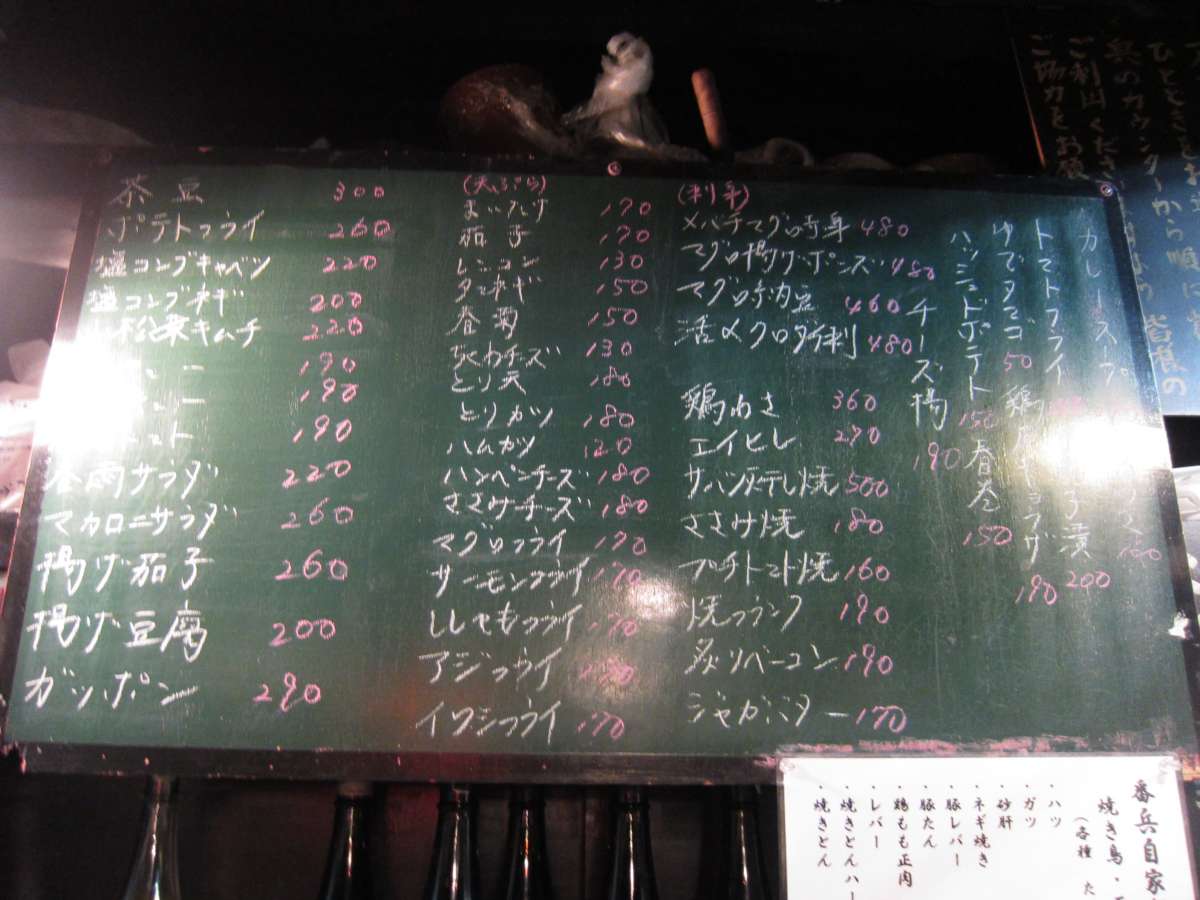 茶豆 300
ポテトフライ 260
塩コンブキャベツ 220
塩コンブネギ 200
小松菜キムチ 220
190
190
トマト 190
サラダ 220
マカロニサラダ 260
揚げ茄子 260
揚げ豆腐 200
ガツポン 290
(天ぷら)
まいたけ 170
茄子 170
レンコン 130
タマネギ 150
春菊 150
ちくわチーズ 130
とり天 180
とりカツ 180
ハムカツ 120
ハンペンチーズ 180
ささみチーズ 180
マグロフライ 190
サーモンフライ 170
ししゃもフライ 170
アジフライ
イワシフライ 170
(刺身)
メバチマグロ赤身 480
マグロ揚げポンズ 480
マグロ納豆 460
活〆クロダイ刺 480
鶏わさ 360
エイヒレ 290
サバ灰干し焼 500
ささみ焼 180
プチトマト焼 160
焼フランク 190
炙りベーコン 190
ジャガバター 170
カレースープ
トマトフライ
ゆでタマゴ 50
ハッシュドポテト 150
チーズ揚 190
漬 200
鶏 190
春巻 150
番兵自家
焼き鳥・
(各種 た
・ハツ
・ガツ
・砂肝
・ネギ焼き
・豚レバー
・豚たん
・鶏もも正肉
・レバー
・焼きとんハー
・焼きとん
ひとときを
兵のカウンターから
ご利用くださ
ご協力をお願
皆様の